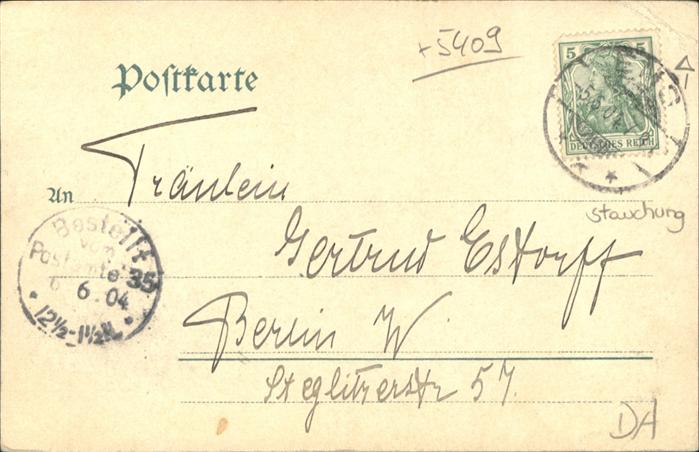 +5409
5 5
Postkarte
DEUTSCHES REICH
5.6.04
An
Fräulein
stauchung
Bestellt
vom
Postamte 35
6. 6. 04
12½-1½N.
Gertrud Estorff
Berlin W.
Steglitzerstr 57.
DA